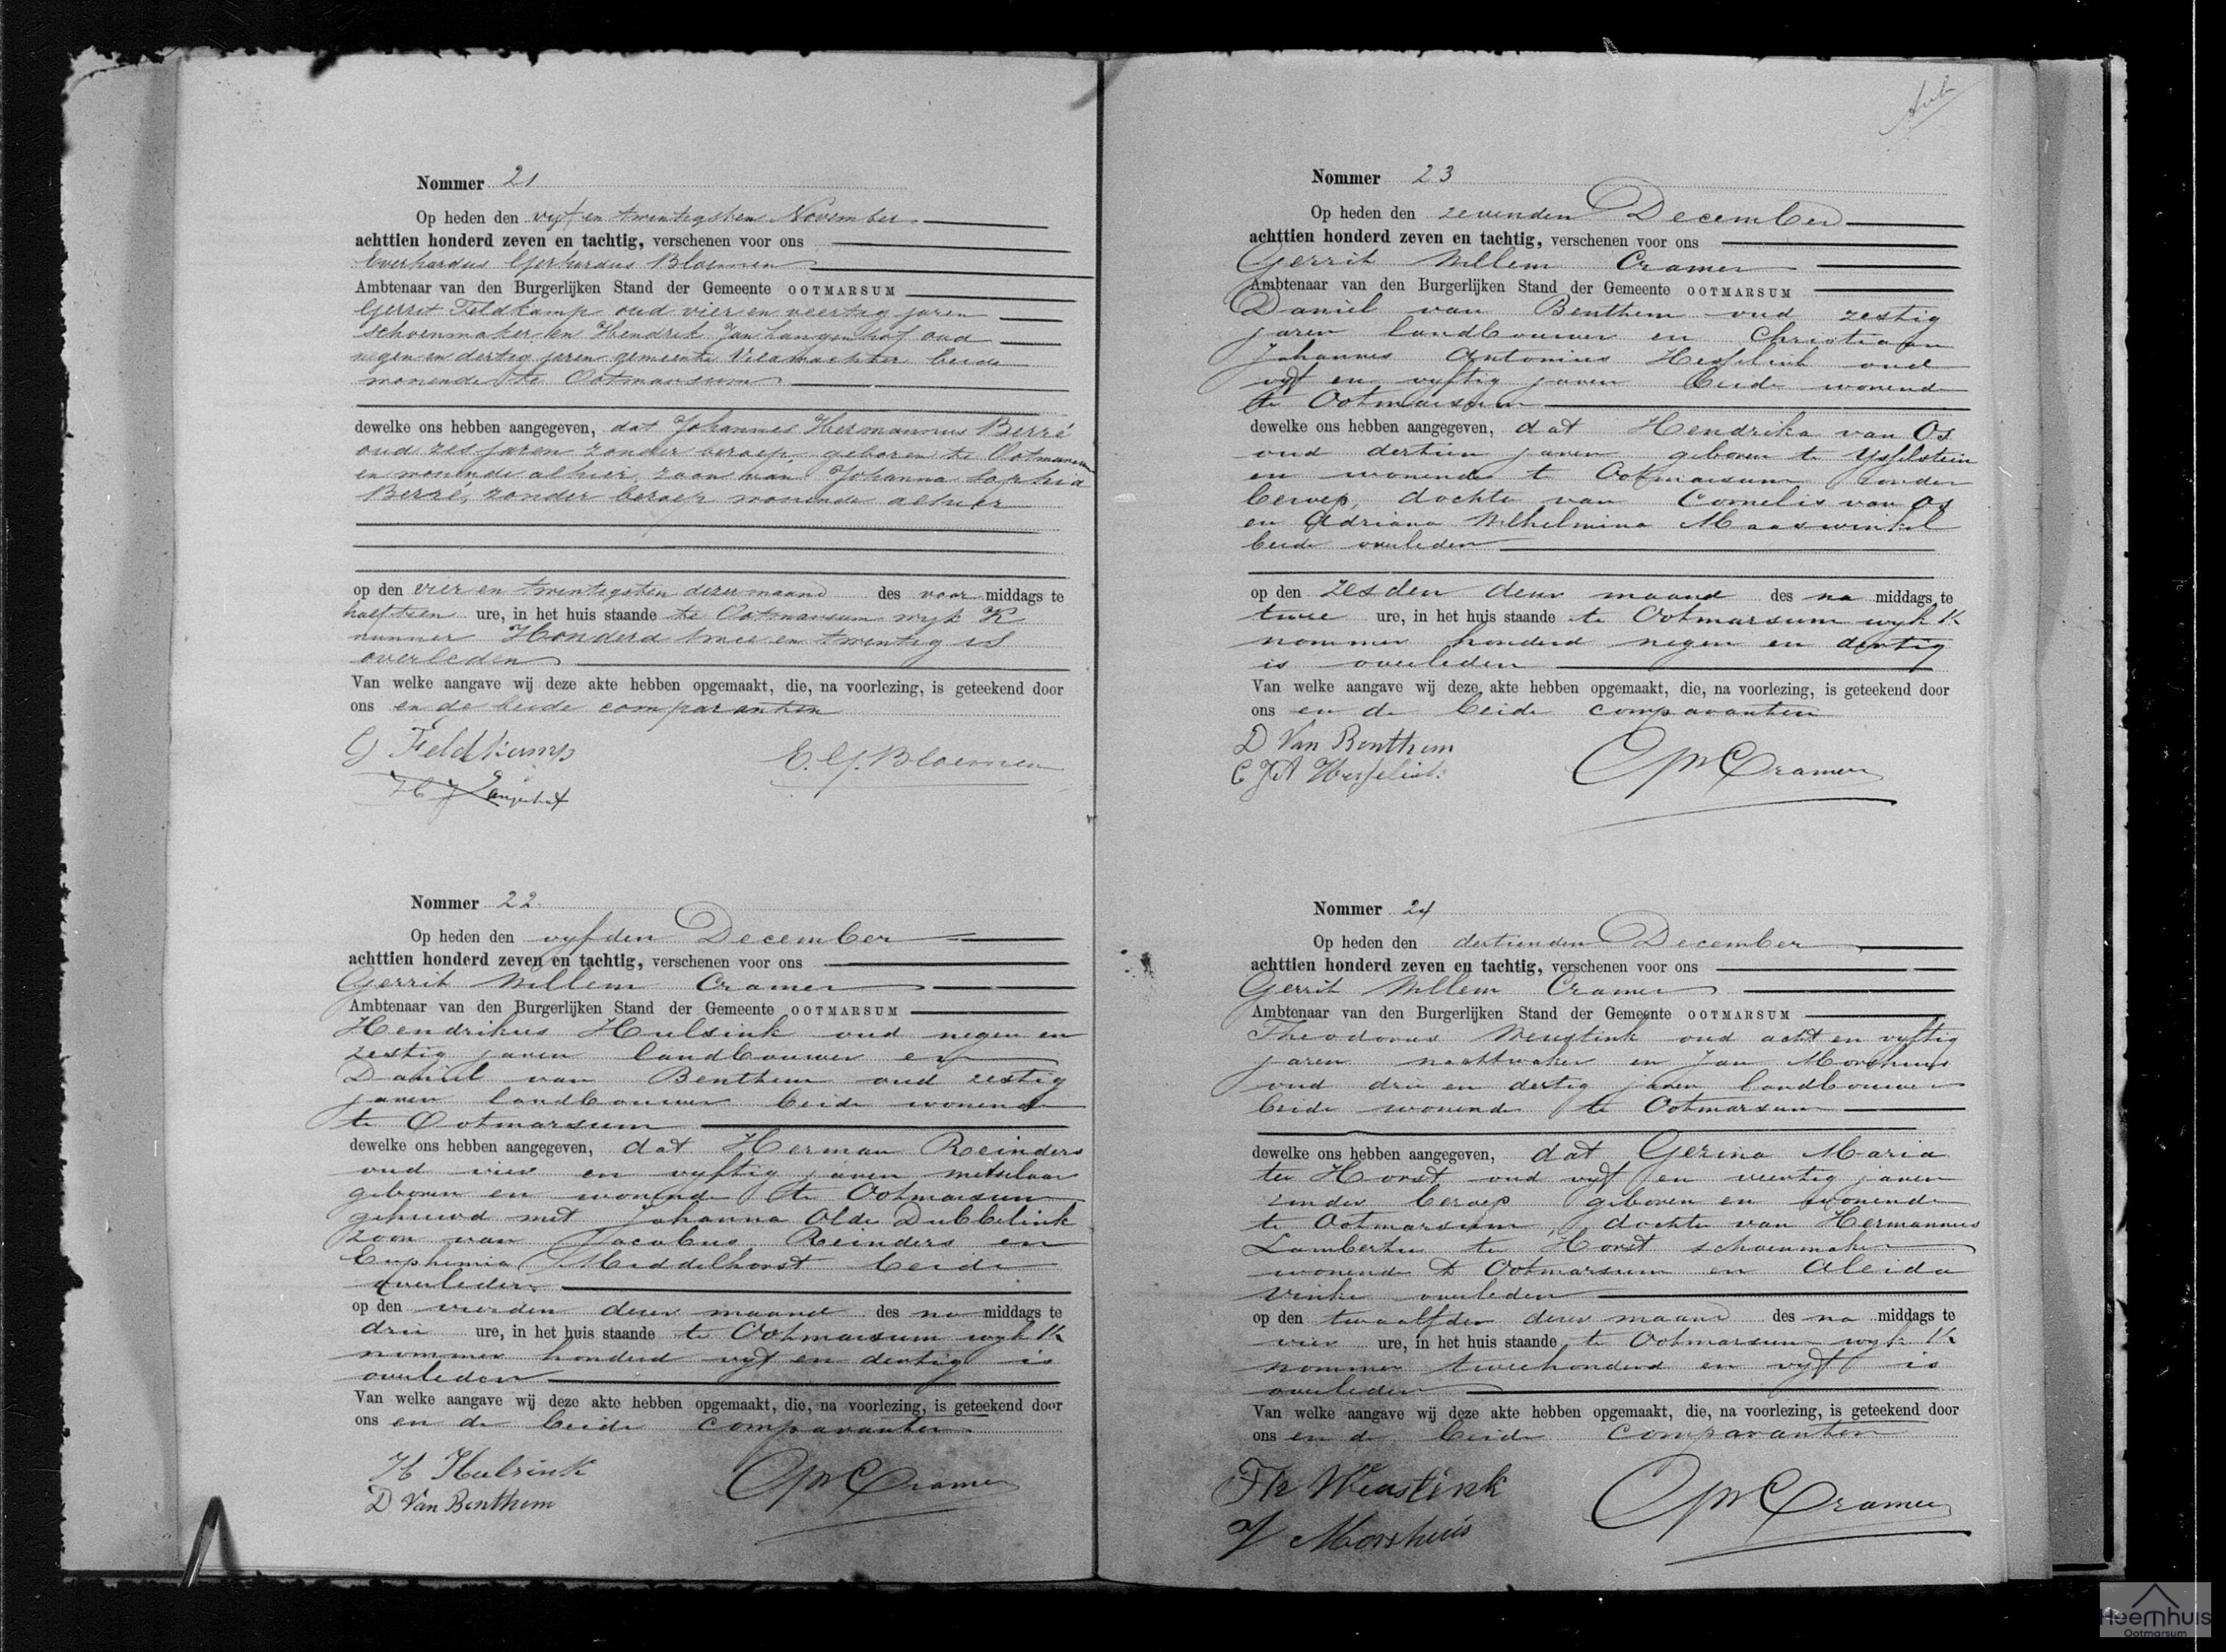 Nommer 21
Op heden den vyf en twintigsten November
achttien honderd zeven en tachtig, verschenen voor ons
Everhardus Gerhardus Bloemen
Ambtenaar van den Burgerlijken Stand der Gemeente OOTMARSUM
Gerrit Feldkamp oud vier en veertig jaren
schoenmaker en Hendrik Jan Langenhof oud
negen en dertig jaren gemeente Veldwachter beide
wonende te Ootmarsum
dewelke ons hebben aangegeven, dat Johannes Hermannus Berré
oud zes jaren zonder beroep, geboren te Ootmarsum
en wonende alhier, zoon van Johanna Sophia
Berré, zonder beroep wonende alhier
op den vier en twintigsten dezer maand des voor middags te
half tien ure, in het huis staande te Ootmarsum wyk K
nummer Honderd twee en twentig is
overleden
Van welke aangave wij deze akte hebben opgemaakt, die, na voorlezing, is geteekend door
ons en de beide comparanten
G Feldkamp
E. G. Bloemen
H J Langenhof
Nommer 22
Op heden den vyfden December
achttien honderd zeven en tachtig, verschenen voor ons
Gerrit Willem Cramer
Ambtenaar van den Burgerlijken Stand der Gemeente OOTMARSUM
Hendrikus Hulsink oud negen en
zestig jaren landbouwer en
Daniel van Benthem oud zestig
jaren landbouwer beide wonende
te Ootmarsum
dewelke ons hebben aangegeven, dat Herman Reinders
oud vier en vyftig jaren metselaar
geboren en wonende te Ootmarsum
gehuwd met Johanna Olde Dubbelink
zoon van Jacobus Reinders en
Euphemia Middelhorst beide
overleden
op den vierden dezer maand des na middags te
drie ure, in het huis staande te Ootmarsum wyk K
nommer honderd vyf en dertig is
overleden
Van welke aangave wij deze akte hebben opgemaakt, die, na voorlezing, is geteekend door
ons en de beide comparanten
H Hulsink
D Van Benthem
GW Cramer
Nommer 23
Op heden den zevenden December
achttien honderd zeven en tachtig, verschenen voor ons
Gerrit Willem Cramer
Ambtenaar van den Burgerlijken Stand der Gemeente OOTMARSUM
Daniel van Benthem oud zestig
jaren landbouwer en Christiaan
Johannes Antonius Hesselink oud
vyf en vyftig jaren beide wonend
te Ootmarsum
dewelke ons hebben aangegeven, dat Hendrika van Os
oud dertien jaren geboren te Ysselstein
en wonende te Ootmarsum zonder
beroep, dochter van Cornelis van Os
en Adriana Wilhelmina Maaswinkel
beide overleden
op den zesden dezer maand des na middags te
twee ure, in het huis staande te Ootmarsum wyk K
nommer honderd negen en dertig
is overleden
Van welke aangave wij deze akte hebben opgemaakt, die, na voorlezing, is geteekend door
ons en de beide comparanten
D Van Benthem
C J A Hesselink
GW Cramer
Nommer 24
Op heden den dertienden December
achttien honderd zeven en tachtig, verschenen voor ons
Gerrit Willem Cramer
Ambtenaar van den Burgerlijken Stand der Gemeente OOTMARSUM
Theodorus Weustink oud acht en vyftig
jaren nachtwaker en Jan Morshuis
oud drie en dertig jaren landbouwer
beide wonende te Ootmarsum
dewelke ons hebben aangegeven, dat Gezina Maria
ter Horst oud vyf en veertig jaren
zonder beroep geboren en wonende
te Ootmarsum, dochter van Hermannus
Lambertus ter Horst schoenmaker
wonende te Ootmarsum en Aleida
Vinke overleden
op den twaalfden dezer maand des na middags te
vier ure, in het huis staande te Ootmarsum wyk K
nommer tweehonderd en vyf is
overleden
Van welke aangave wij deze akte hebben opgemaakt, die, na voorlezing, is geteekend door
ons en de beide comparanten
Th Weustink
J Morshuis
GW Cramer
Heemhuis
Ootmarsum